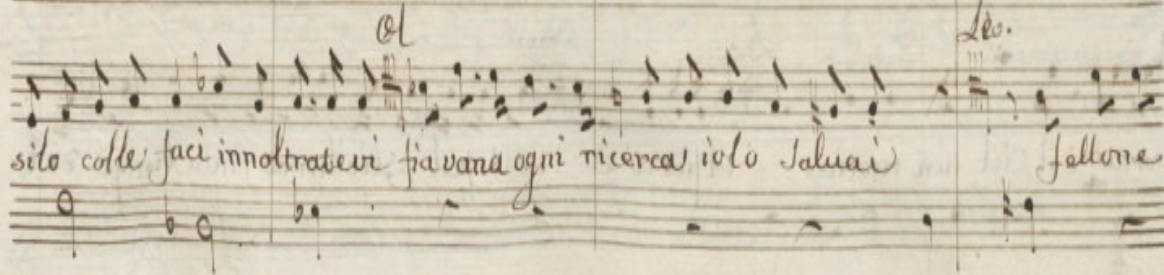 Ol
Leo.
silo colle faci innoltratevi fia vana ogni ricerca iolo salvai fellone